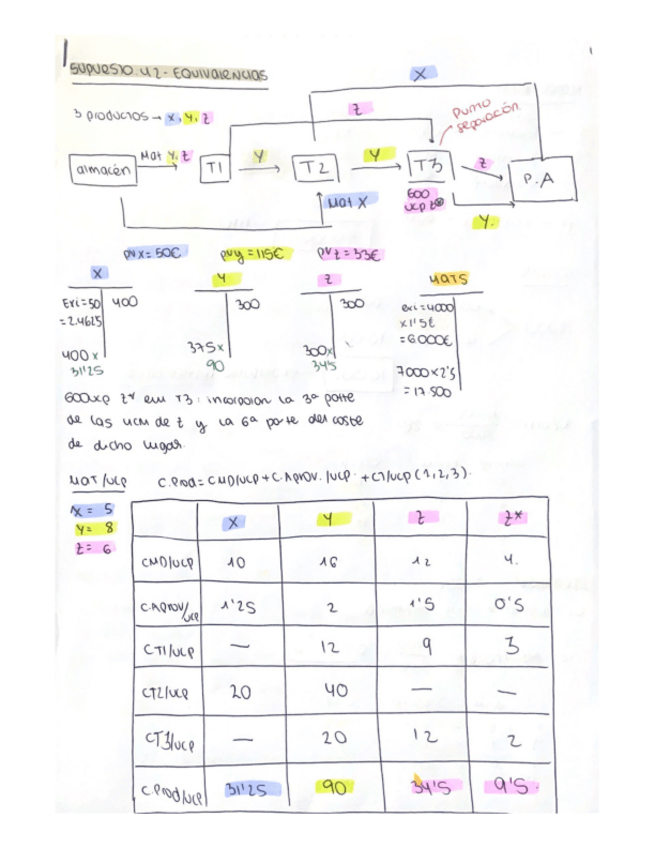 SUPUESTO 4.2 - EQUIVALENCIAS
X
3 productos → X, Y, Z
Z
Punto separación
almacén
Mat Y, Z
T1
Y
T2
Y
T3
Z
P.A
Mat X
600 ucp Z*
Y.
pvx = 50€
pvy = 115€
pvz = 33€
X
Y
Z
MATS
Exi = 50
400
300
300
exi = 4000
= 2.4625
x 1'5€
= 6000€
400 x 31'25
375 x 90
300 x 34'5
7000 x 2'5
= 17.500
600 ucp Z* em T3: incorporan la 3ª parte
de las ucm de Z y la 6ª parte del coste
de dicho lugar.
MAT/UCP
C.Prod = CMD/UCP + C.Aprov./UCP + CT/UCP (1,2,3).
X = 5
Y = 8
Z = 6
X Y Z Z*
CMD/UCP 10 16 12 4.
C.APROV/UCP 1'25 2 1'5 0'5
CT1/UCP — 12 9 3
CT2/UCP 20 40 — —
CT3/UCP — 20 12 2
C.Prod/UCP 31'25 90 34'5 9'5.